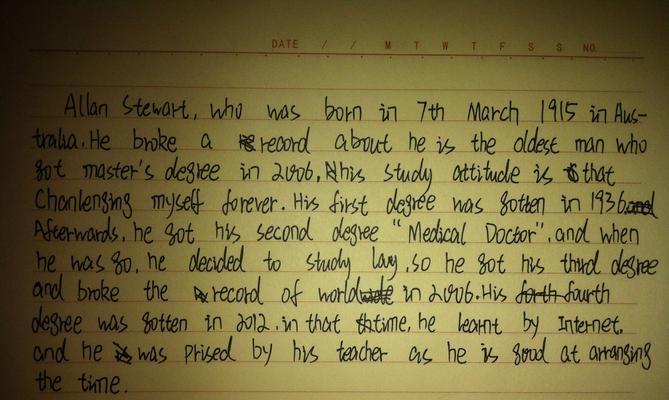 DATE / / M T W T F S S NO.
Allan Stewart, who was born in 7th March 1915 in Aus-
tralia. He broke a record about he is the oldest man who
got master's degree in 2006, his study attitude is that
Chanlenging myself forever. His first degree was gotten in 1936.
Afterwards, he got his second degree "Medical Doctor", and when
he was 80, he decided to study lawy, so he got his third degree
and broke the record of world in 2006. His forth fourth
degree was gotten in 2012. in that time, he learnt by Internet.
and he was prised by his teacher as he is good at arranging
the time.